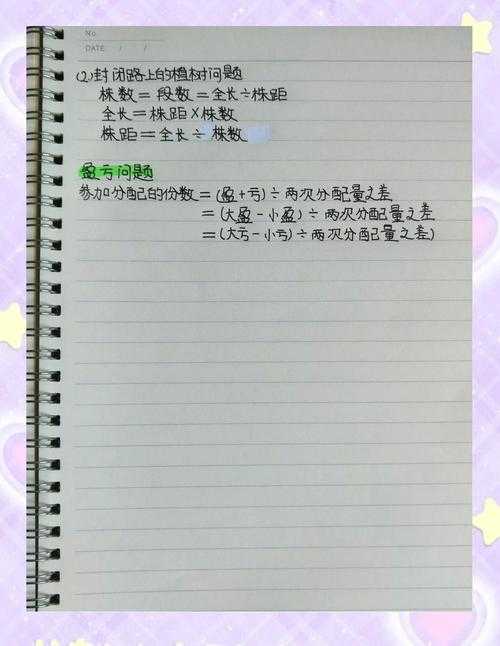 No.
DATE / /
(2)封闭路上的植树问题
株数=段数=全长÷株距
全长=株距×株数
株距=全长÷株数
盈亏问题
参加分配的份数=(盈+亏)÷两次分配量之差
=(大盈-小盈)÷两次分配量之差
=(大亏-小亏)÷两次分配量之差)